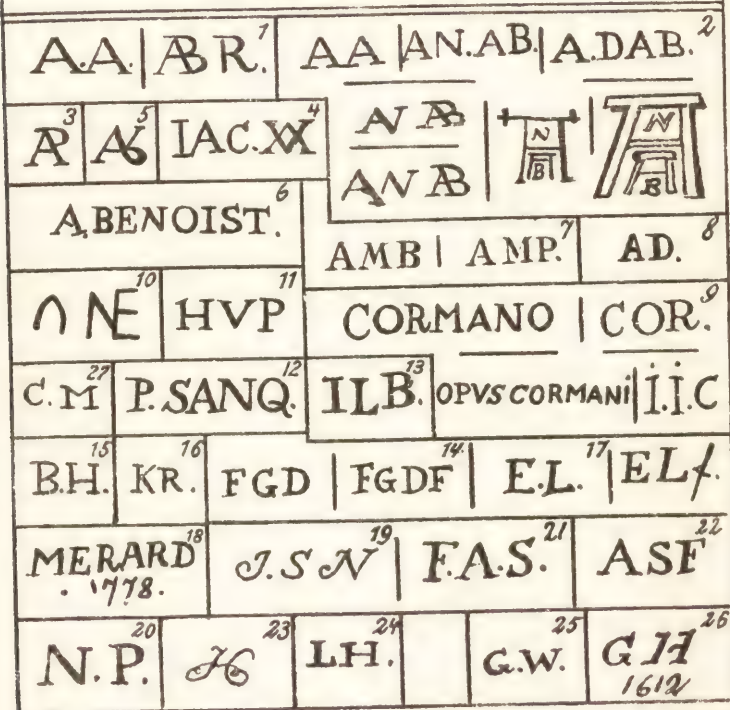 A.A. | AB R. 1
AA | AN.AB. | A.DAB. 2
AP 3
5
IAC. 4
N AB
AN AB
N
B
N
B
A.BENOIST. 6
AMB | AMP. 7
AD. 8
NE 10
HVP 11
CORMANO | COR. 9
C.M 27
P.SANQ. 12
ILB. 13
OPVS CORMANi | İ.İ.C
B.H. 15
KR. 16
FGD | FGDF 14.
E.L. 17 | ELf.
MERARD 18
. 1778.
J.S N 19
F.A.S. 21
ASF 22
N.P. 20
23
LH. 24
G.W. 25
G H 26
1612